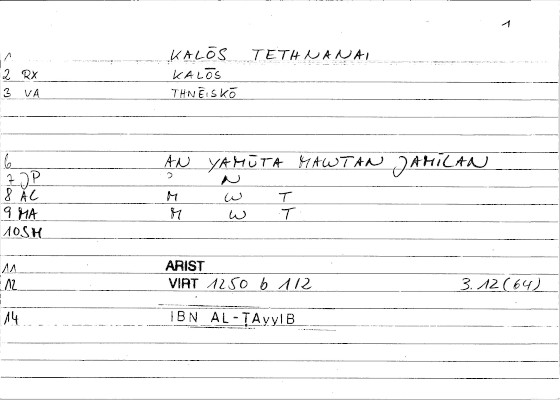 1
1 KALŌS TETHNANAI
2 RX KALŌS
3 VA THNĒISKŌ
6 AN YAMŪTA MAWTAN JAMĪLAN
7 JP ʾ N
8 AL M W T
9 MA M W T
10 SM
11 ARIST
12 VIRT 1250 b 1/2 3.12(64)
14 IBN AL-ṬAyyIB